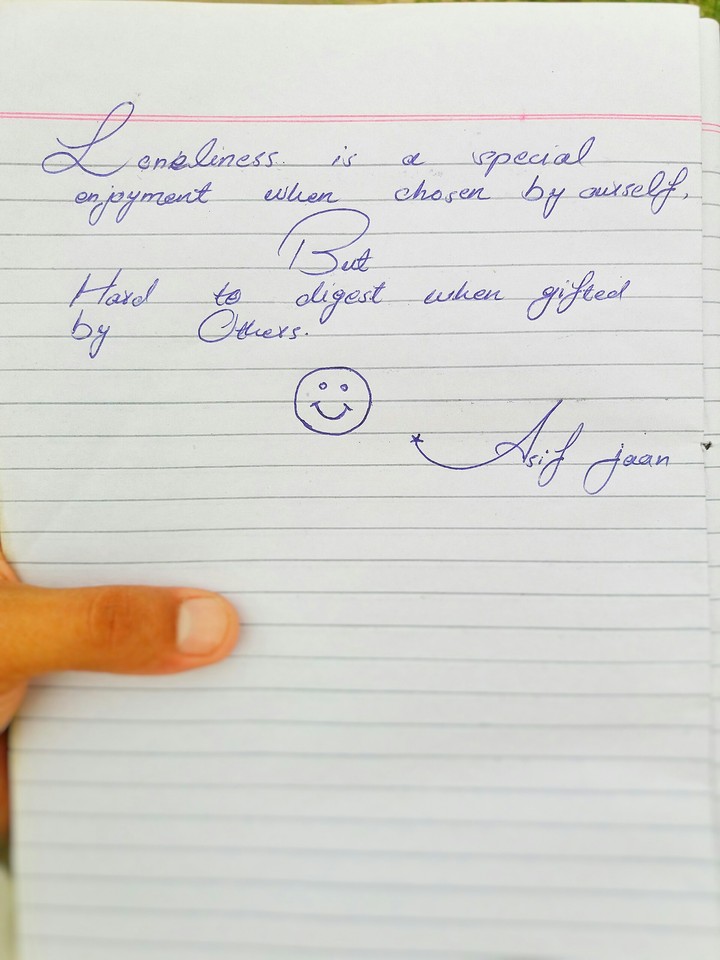 Loneliness. is a special
enjoyment when chosen by ourself,
But
Hard to digest when gifted
by Others.
Asif jaan